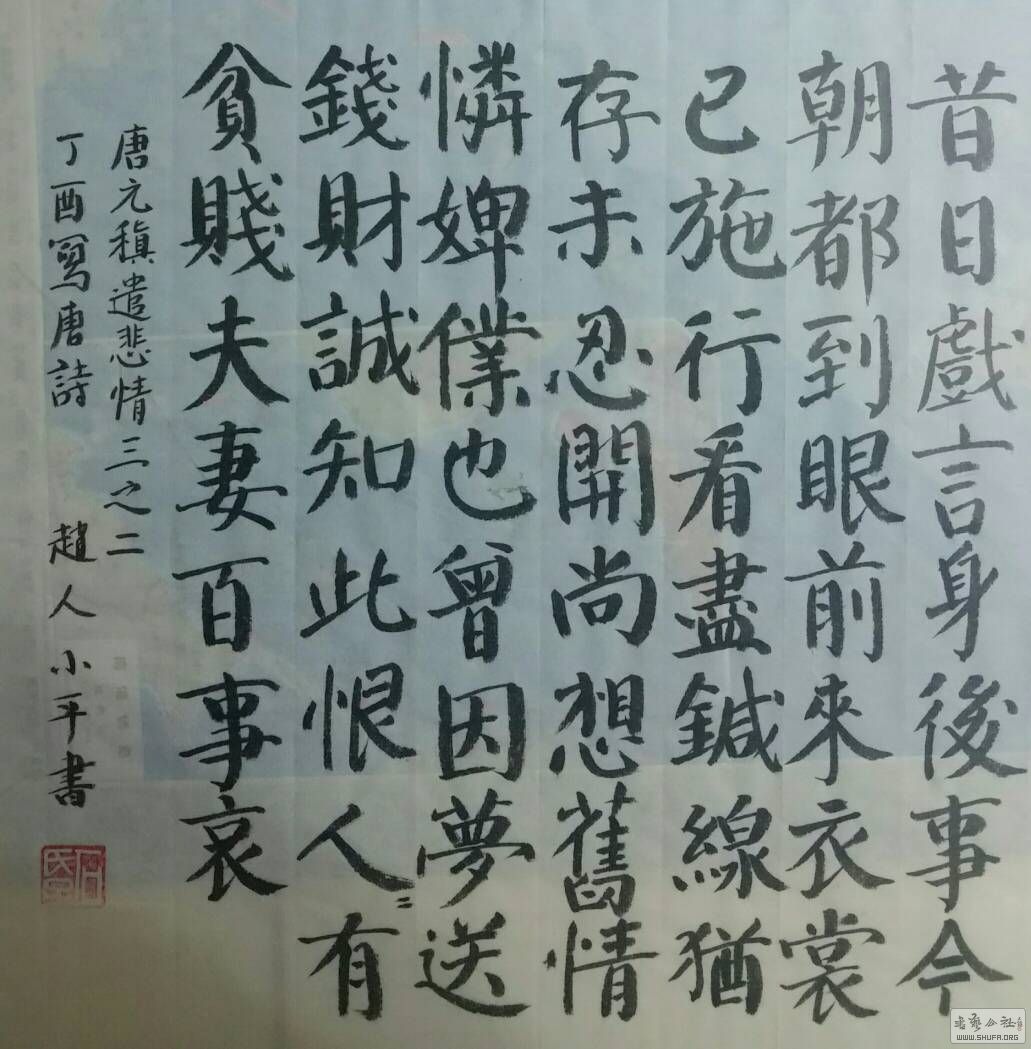 昔日戲言身後事今
朝都到眼前來衣裳
已施行看盡鍼線猶
存未忍開尚想舊情
憐婢僕也曾因夢送
錢財誠知此恨人〻有
貧賤夫妻百事哀
唐元稹遣悲情三之二
丁酉寫唐詩 趙人小平書
WWW.SHUFA.ORG